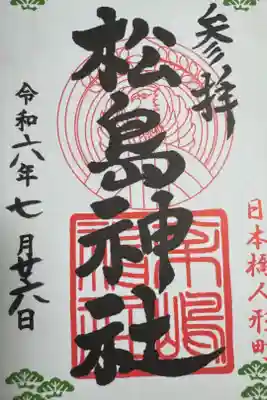 参拝
日本橋人形町
松島神社
令和六年七月廿六日